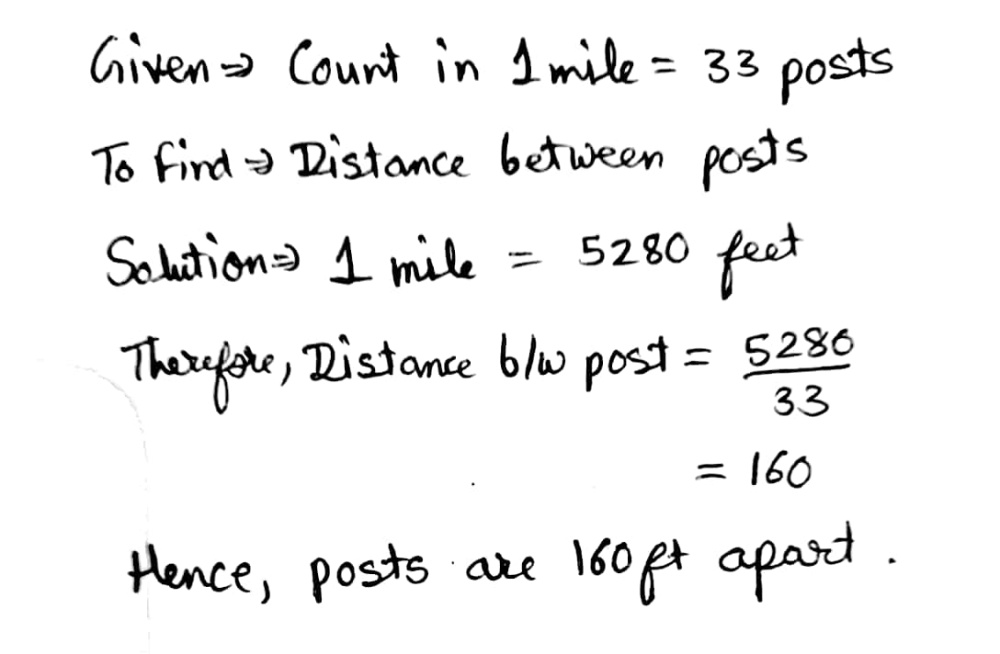 Given ⇒ Count in 1 mile = 33 posts
To find ⇒ Distance between posts
Solution ⇒ 1 mile = 5280 feet
Therefore, Distance b/w post = 5280
33
= 160
Hence, posts are 160 ft apart.